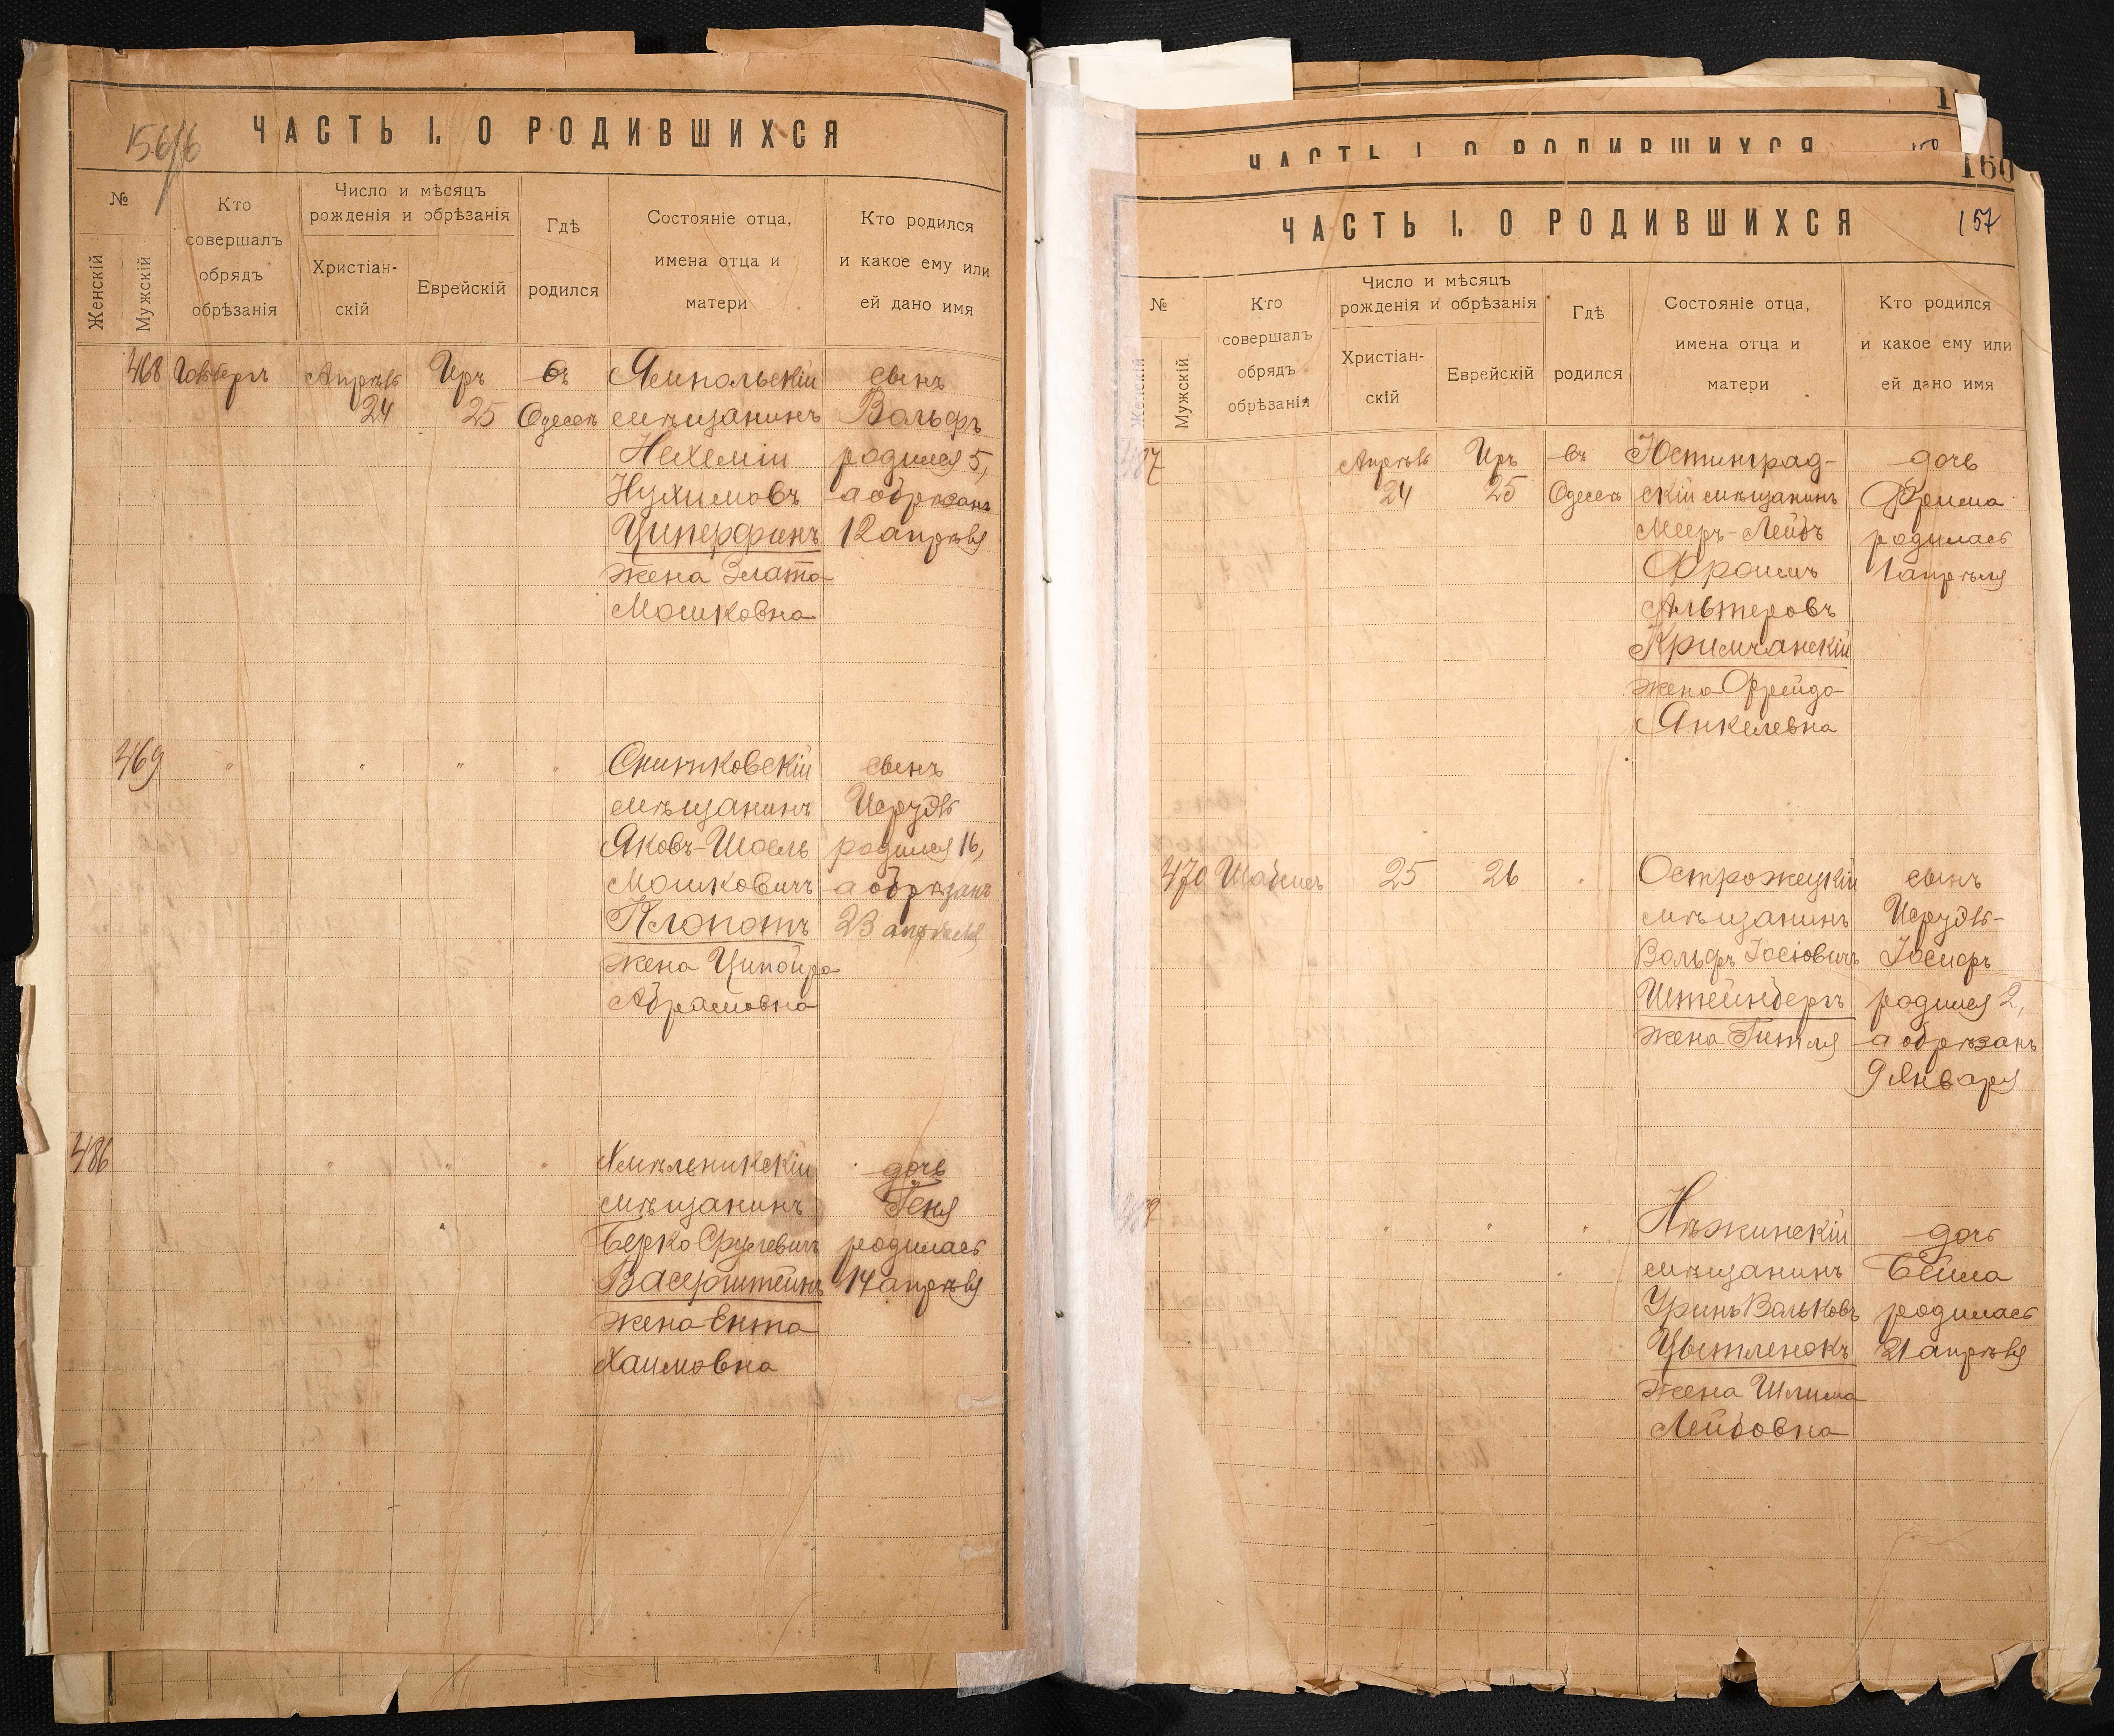 156/6
ЧАСТЬ I. О РОДИВШИХСЯ
№
Женскій
Мужскій
Кто
совершалъ
обрядъ
обрѣзанія
Число и мѣсяцъ
рожденія и обрѣзанія
Христіан-
скій
Еврейскій
Гдѣ
родился
Состояніе отца,
имена отца и
матери
Кто родился
и какое ему или
ей дано имя
468
Апрѣль
24
Иръ
25
въ
Одессѣ
Ямпольскій
мѣщанинъ
Нехемія
Нухимовъ
Циперфинъ
жена Злата
Мошковна
сынъ
Вольфъ
родился 5,
а обрѣзанъ
12 апрѣля
469
"
"
"
"
Снитковскій
мѣщанинъ
Яковъ-Шоель
Мошковичъ
Клопотъ
жена Ципойра
Абрамовна
сынъ
Исруэль
родился 16,
а обрѣзанъ
23 апрѣля
486
"
"
"
Хмѣльникскій
мѣщанинъ
Берко Срулевичъ
Васерштейнъ
жена Ента
Хаимовна
дочь
Геня
родилась
14 апрѣля
160
ЧАСТЬ I. О РОДИВШИХСЯ
157
№
Женскій
Мужскій
Кто
совершалъ
обрядъ
обрѣзанія
Число и мѣсяцъ
рожденія и обрѣзанія
Христіан-
скій
Еврейскій
Гдѣ
родился
Состояніе отца,
имена отца и
матери
Кто родился
и какое ему или
ей дано имя
487
Апрѣль
24
Иръ
25
въ
Одессѣ
Юстинград-
скій мѣщанинъ
Мееръ-Лейбъ
Фроимъ
Альтеровъ
Кримчанскій
жена Фрейда
Янкелевна
дочь
Фрима
родилась
1 апрѣля
470
Шабсисъ
25
26
Острожецкій
мѣщанинъ
Вольфъ Іосіовичъ
Штейнбергъ
жена Гитля
сынъ
Исруэль-
Іосифъ
родился 2,
а обрѣзанъ
9 Января
"
"
"
Нѣжинскій
мѣщанинъ
Уринъ Вольковъ
Цытленокъ
жена Шлима
Лейбовна
дочь
Бейла
родилась
21 апрѣля